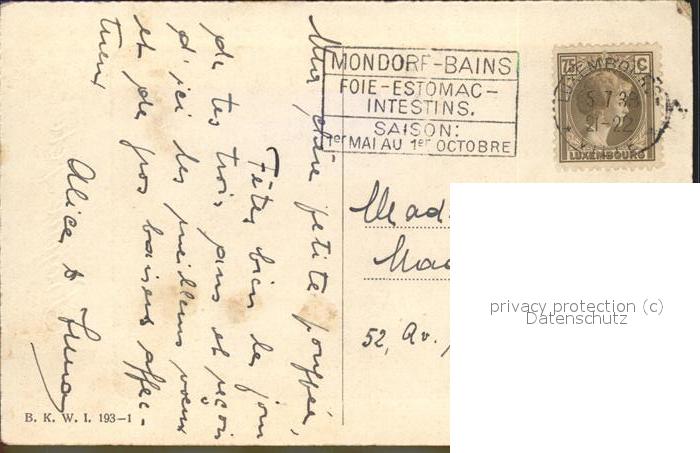 MONDORF-BAINS
FOIE-ESTOMAC-
INTESTINS.
SAISON:
1er MAI AU 1er OCTOBRE
75 C
LUXEMBOURG
21-22
LUXEMBOURG
Ma chère petite poupée,
Fêtes bien le jour
de tes trois ans et reçois
d'ici les meilleurs vœux
et de gros baisers affec-
tueux
Alice &
Mad
52, Av.
privacy protection (c)
Datenschutz
B. K. W. I. 193-1